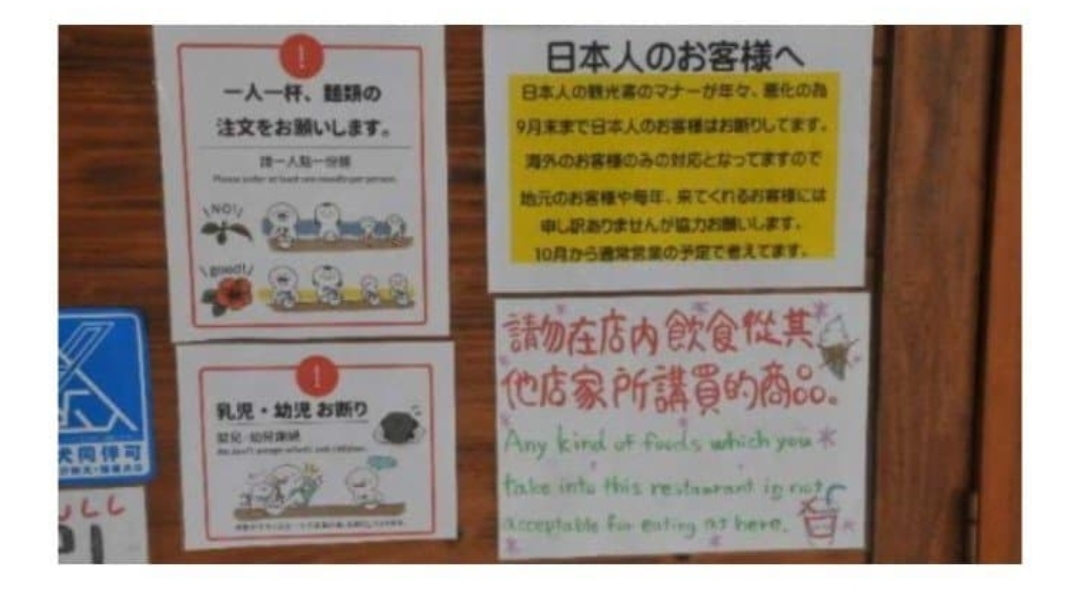 一人一杯、麺類の
注文をお願いします。
請一人點一份麵
Please order at least one noodle per person.
\NO!/
\good!/
乳児・幼児 お断り
嬰兒・幼兒謝絕
犬同伴可
ULL
日本人のお客様へ
日本人の観光客のマナーが年々、悪化の為
9月末まで日本人のお客様はお断りしてます。
海外のお客様のみの対応となってますので
地元のお客様や毎年、来てくれるお客様には
申し訳ありませんが協力お願いします。
10月から通常営業の予定で考えてます。
請勿在店内飲食從其
他店家所講買的商品。
Any kind of foods which you
take into this restaurant is not
acceptable for eating at here.